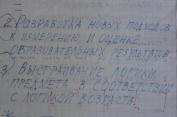 2. Разработка новых подходов
к измерению и оценке
образовательных результатов.
3) Выстраивание логики
предмета в соответствии
с логикой возраста.